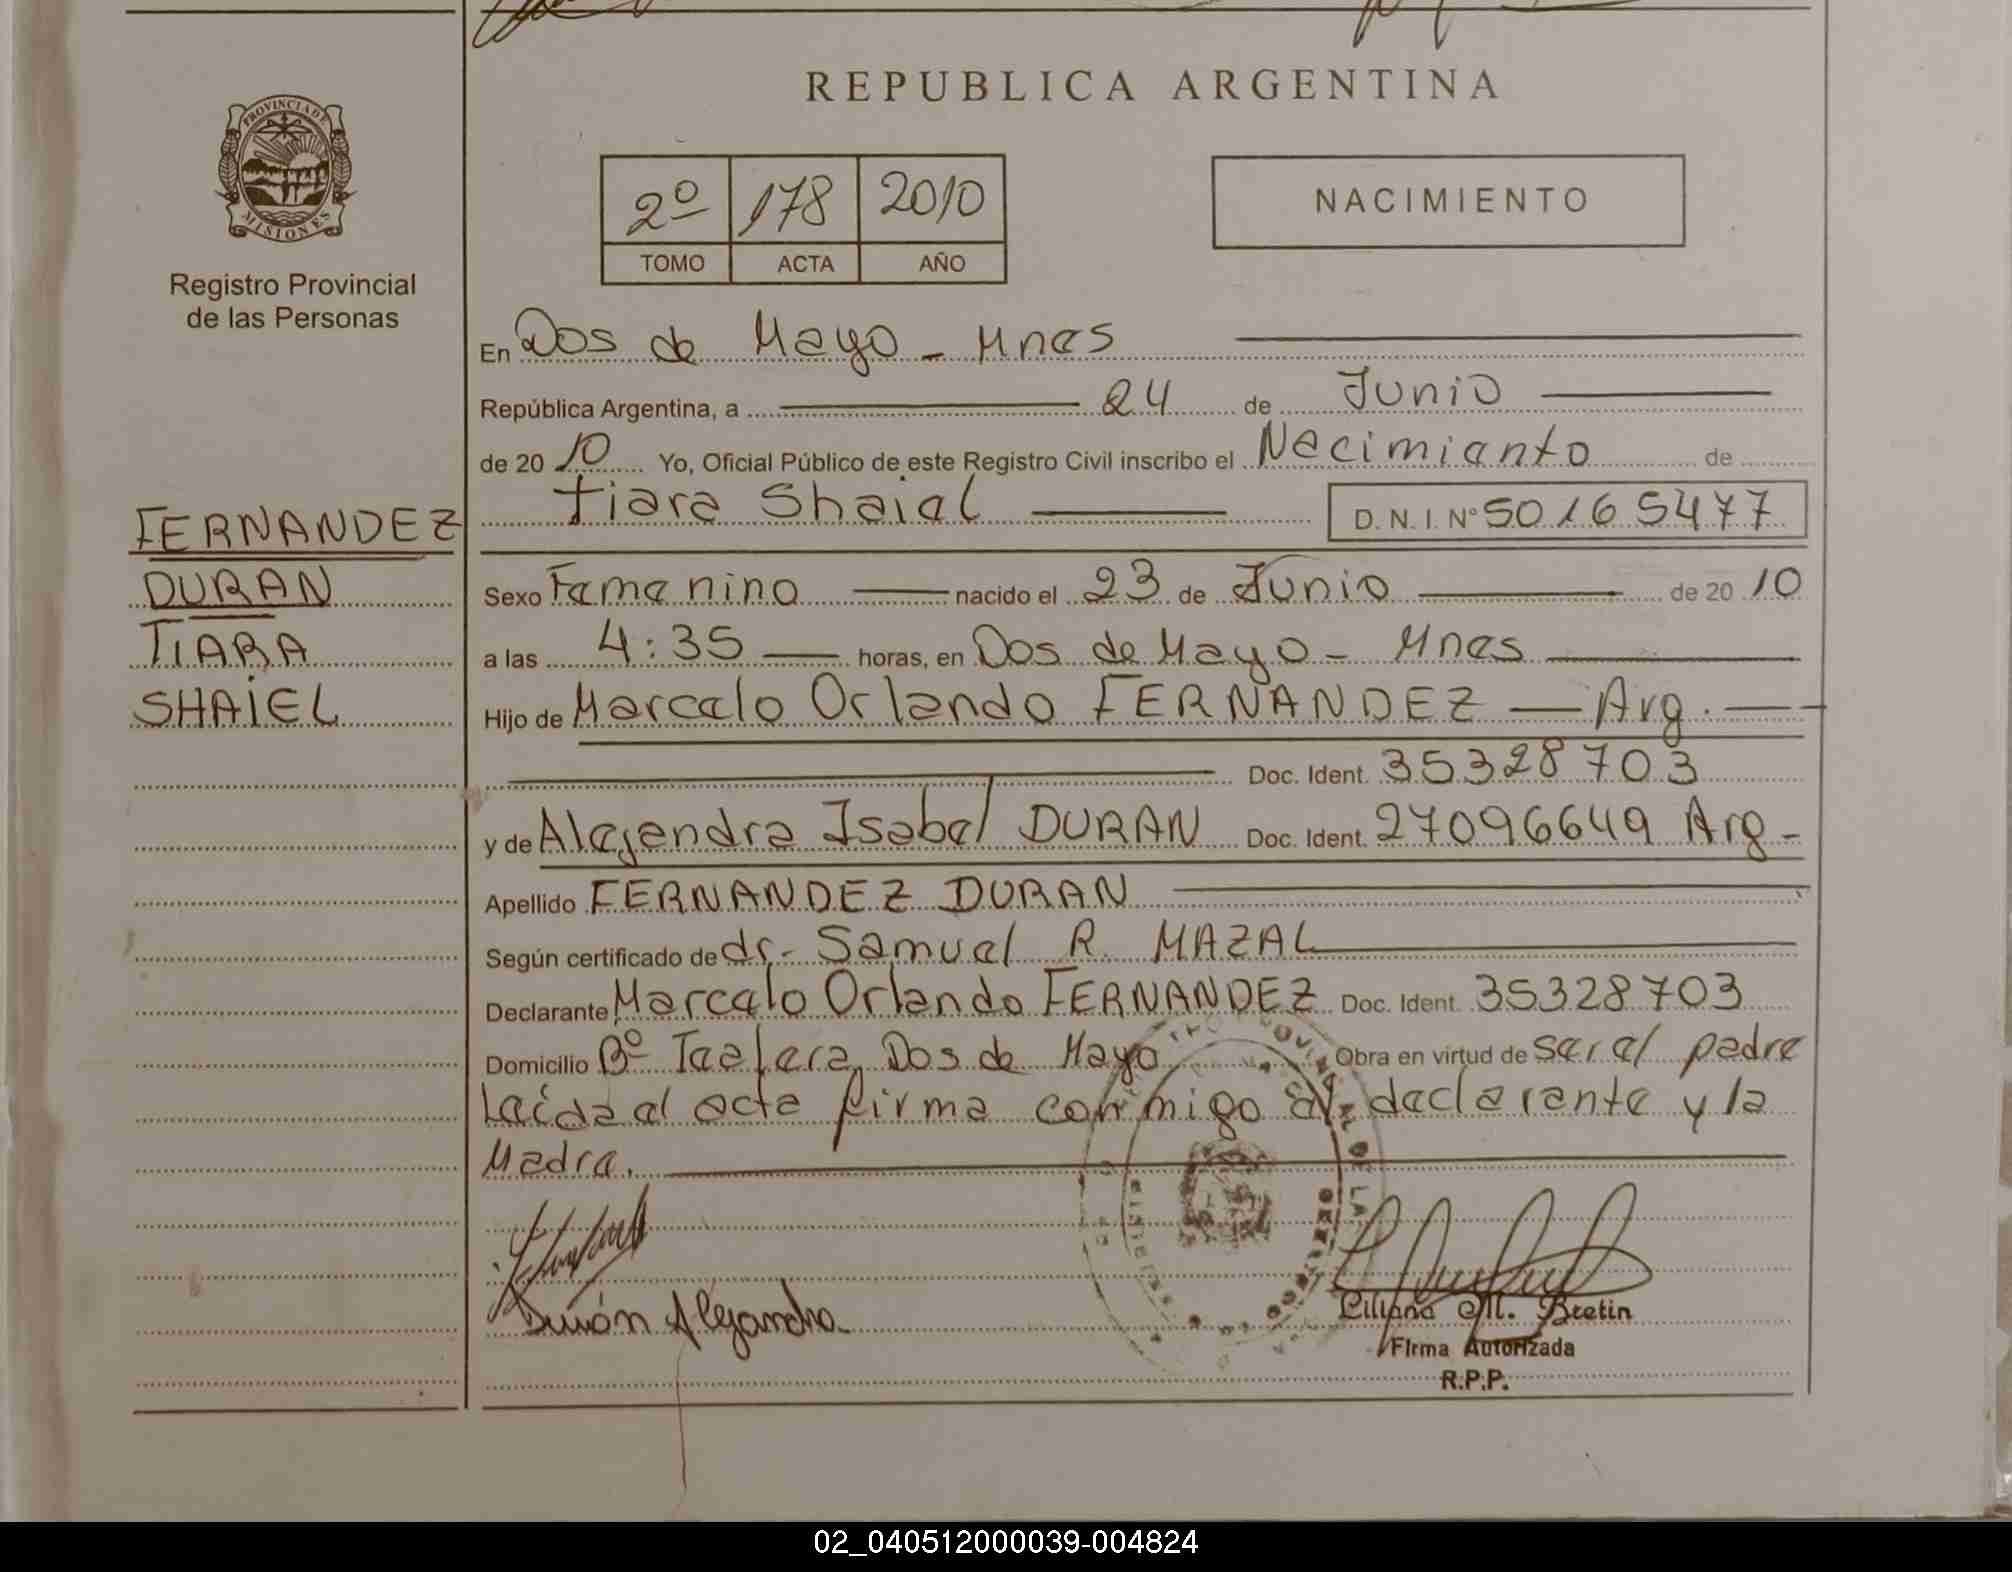 REPUBLICA ARGENTINA
PROVINCIA DE
MISIONES
Registro Provincial
de las Personas
2º 178 2010
TOMO ACTA AÑO
NACIMIENTO
En Dos de Mayo - Mnes
República Argentina, a 24 de Junio
de 20 10 Yo, Oficial Público de este Registro Civil inscribo el Nacimiento de
Tiara Shaiel D. N. I. Nº 50165477
FERNANDEZ
DURAN
TIARA
SHAIEL
Sexo Femenino nacido el 23 de Junio de 20 10
a las 4:35 horas, en Dos de Mayo - Mnes
Hijo de Marcelo Orlando FERNANDEZ — Arg.
Doc. Ident. 35328703
y de Alejandra Isabel DURAN Doc. Ident. 27096649 Arg -
Apellido FERNANDEZ DURAN
Según certificado de dr. Samuel R. MAZAL
Declarante Marcelo Orlando FERNANDEZ Doc. Ident. 35328703
Domicilio Bº Tealera Dos de Mayo Obra en virtud de ser el padre
Leída el acta firma conmigo el declarante y la
Madre.
Durán Alejandra
Liliana M. Bretin
Firma Autorizada
R.P.P.
02_040512000039-004824